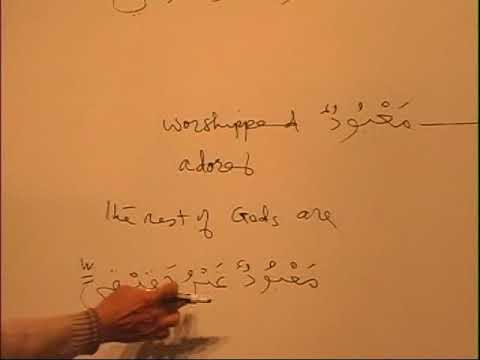 worshipped مَعْبُودٌ
adored
The rest of Gods are
مَعْبُودٌ غَيْرُ حَقِيقِيٍّ